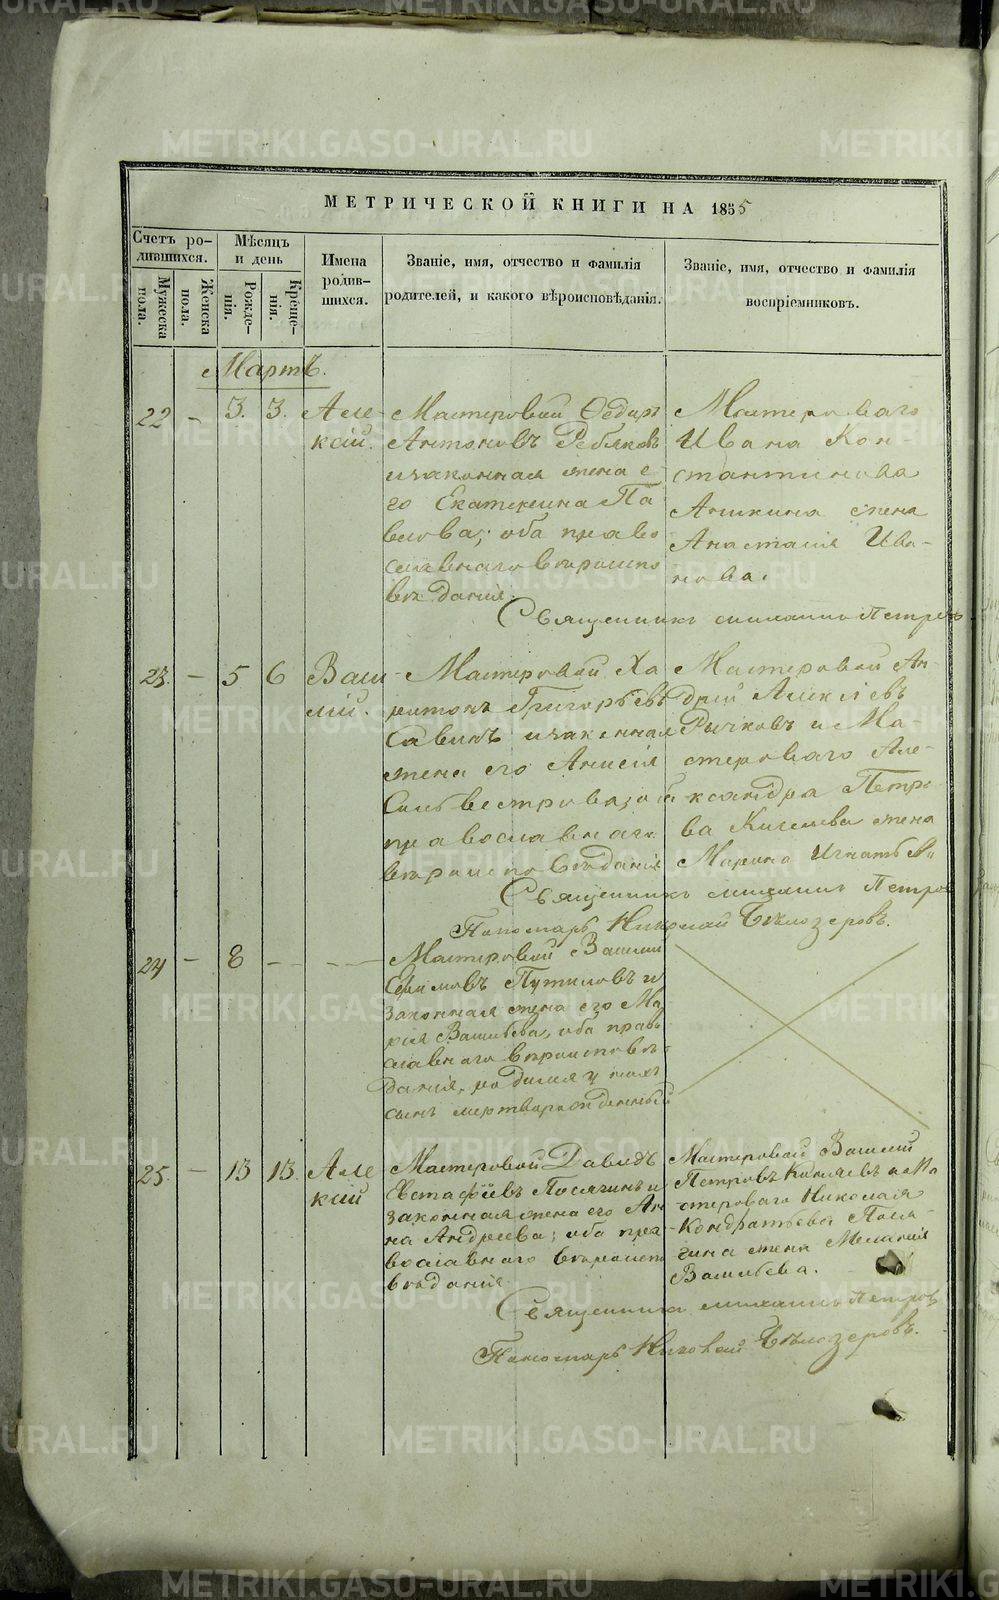 МЕТРИЧЕСКОЙ КНИГИ НА 1855
Счетъ ро-
дившихся.
Мужеска пола.
Женска пола.
Мѣсяцъ
и день
Рожде-
нія.
Креще-
нія.
Имена
родив-
шихся.
Званіе, имя, отчество и фамилія
родителей, и какого вѣроисповѣданія.
Званіе, имя, отчество и фамилія
воспріемниковъ.
Мартъ.
22 – 3. 3. Але-
ксій.
Мастеровой Ѳедоръ
Антоновъ Ребяковъ
и законная жена е-
го Екатерина Па
влова; оба право
славнаго вѣроиспо
вѣданія.
Мастероваго
Ивана Кон-
стантинова
Аникина жена
Анастасія Ива-
нова.
Священникъ Петровъ
23. – 5 6 Васи
лій.
Мастеровой Ха
ритонъ Григорьевъ
Савинъ и законная
жена его Анисія
Сильвестрова
православнаго
вѣроисповѣданія
Мастеровой Ан-
дрей Алексѣевъ
Рычковъ и Ма-
стероваго Але-
ксандра Петро-
ва Киселева жена
Марина Игнатьева
Священникъ Петровъ
Пономарь Николай Бѣлозеровъ.
24 – 8 – –
Мастеровой Василій
Ефимовъ Путиловъ и
законная жена его Ма
рія Васильева, оба право
славнаго вѣроисповѣ-
данія, родился у нихъ
сынъ мертворожденный
25. – 13 13. Але
ксій
Мастеровой Давидъ
Евстафіевъ Посягинъ и
законная жена его Ан
на Андреева; оба пра
вославнаго вѣроиспо
вѣданія
Мастеровой Василій
Петровъ и Ма
стероваго Николая
Кондратьева Пося-
гина жена Меланія
Васильева.
Священникъ Петровъ
Пономарь Николай Бѣлозеровъ.
METRIKI.GASO-URAL.RU